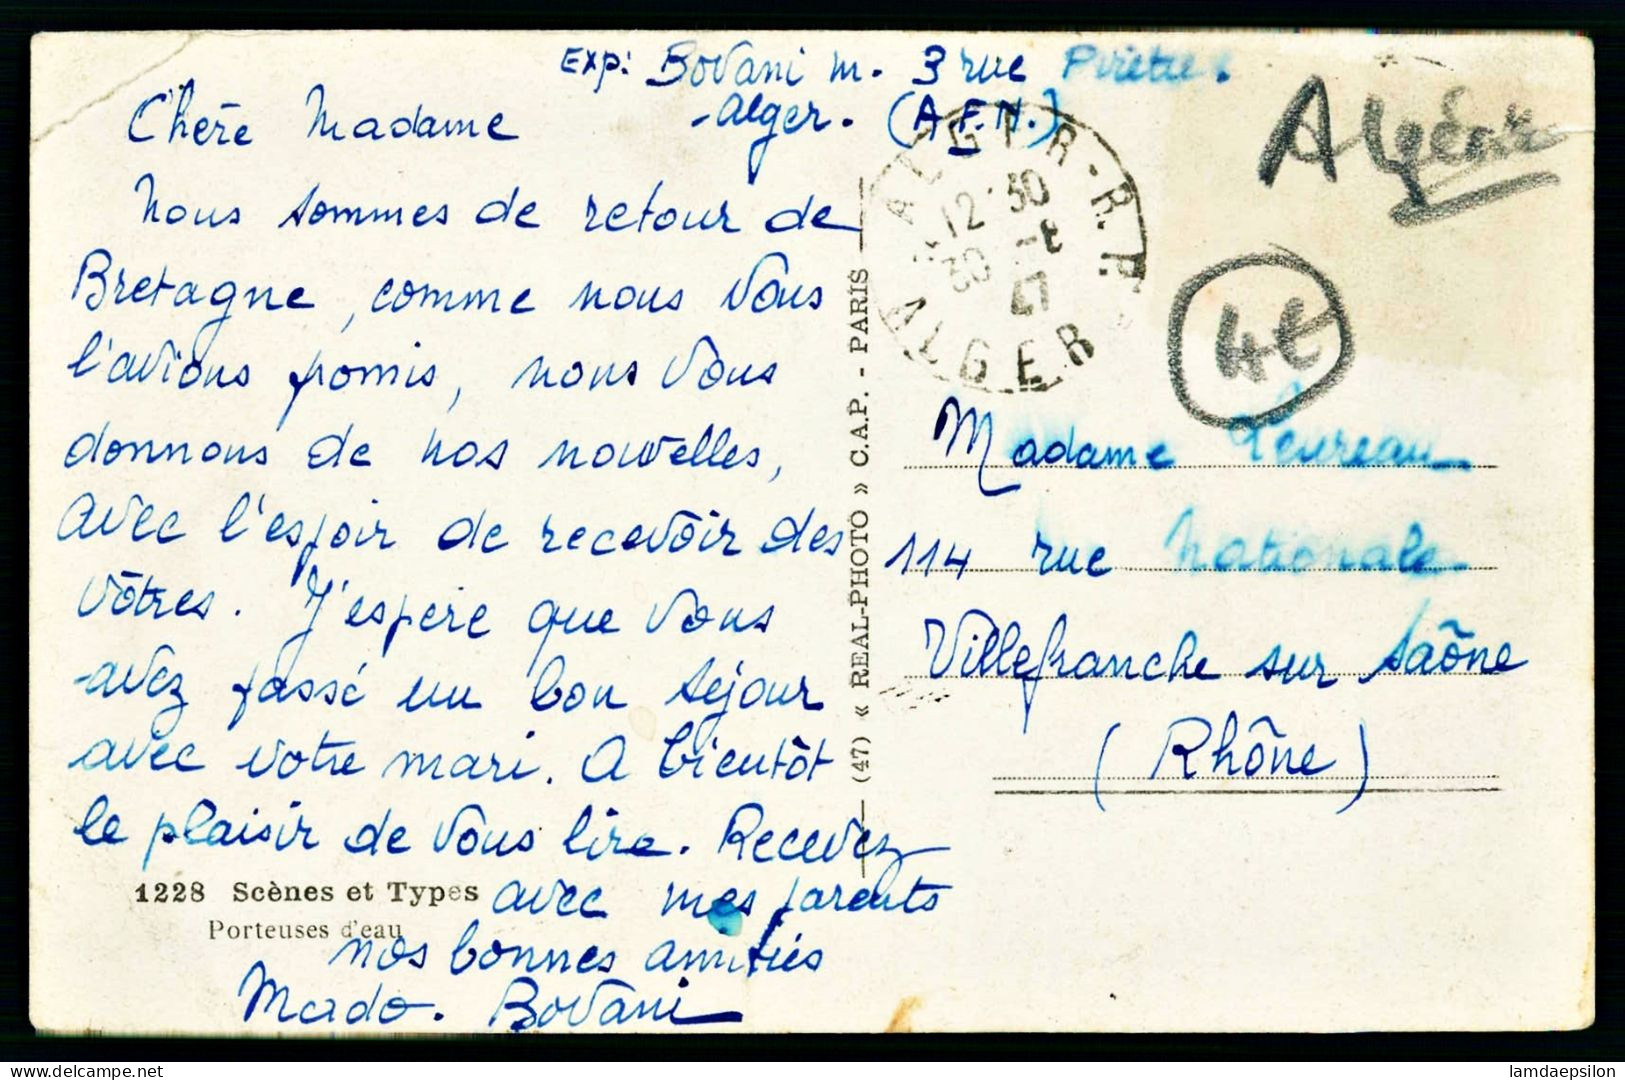 Exp: Bovani M. 3 rue
Alger. (A.F.N.)
Chère Madame
Nous sommes de retour de
Bretagne, comme nous vous
l'avions promis, nous vous
donnons de nos nouvelles,
avec l'espoir de recevoir des
vôtres. J'espère que vous
avez passé un bon séjour
avec votre mari. A bientôt
le plaisir de vous lire. Recevez
avec mes parents
nos bonnes amitiés
Mado. Bovani
1228 Scènes et Types
Porteuses d'eau
(47) « REAL-PHOTO » C.A.P. - PARIS
ALGER-R.P.
12·30
30 -
47
ALGER
Algérie
4€
Madame
114 rue Nationale
Villefranche sur Saône
(Rhône)
lamdaepsilon
delcampe.net